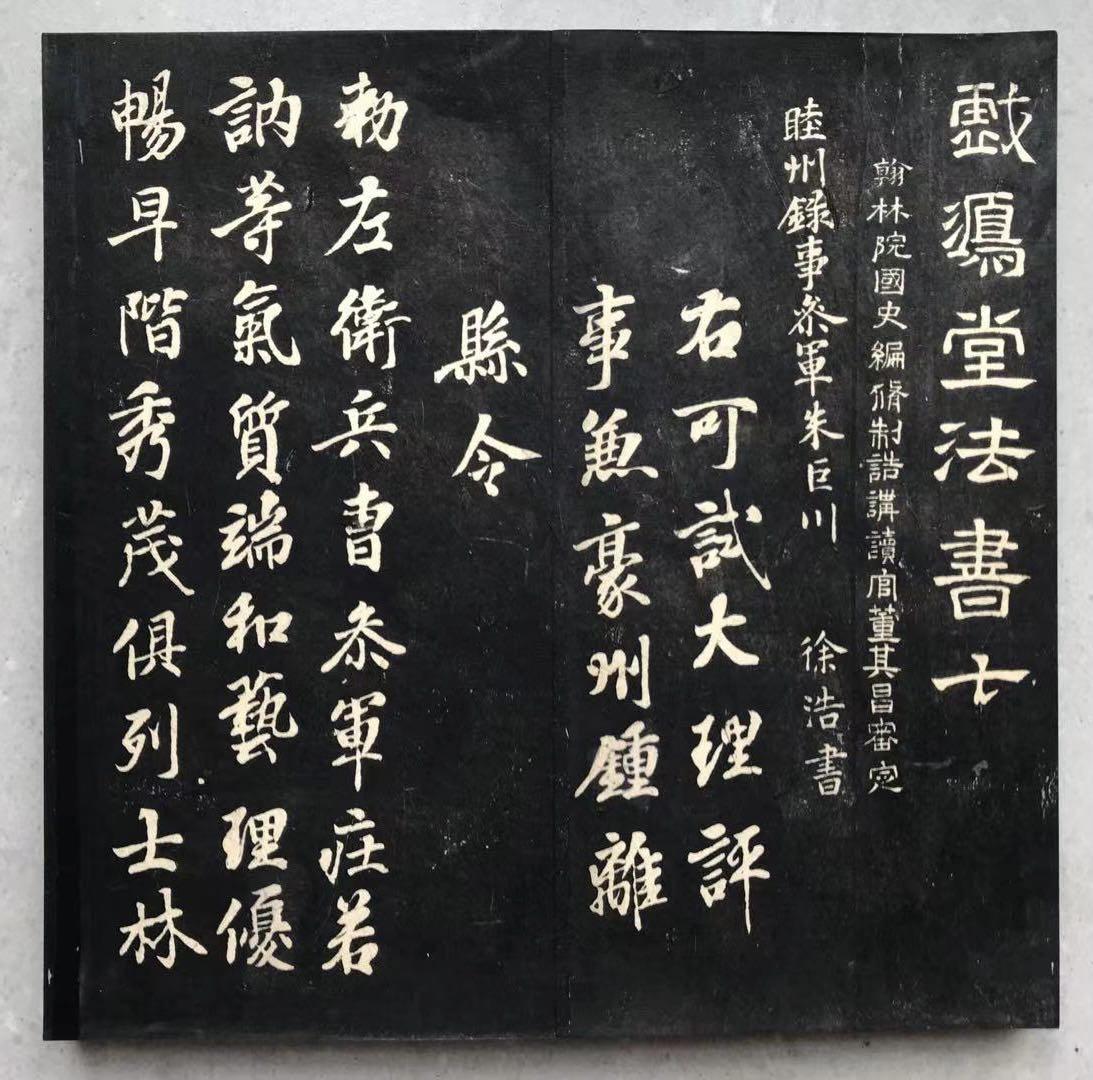 戲鴻堂法書七
翰林院國史編脩制誥講讀官董其昌審定
睦州錄事叅軍朱巨川 徐浩書
右可試大理評
事兼豪州鍾離
縣令
勅左衛兵曹叅軍莊若
訥等氣質端和藝理優
暢早階秀茂俱列士林